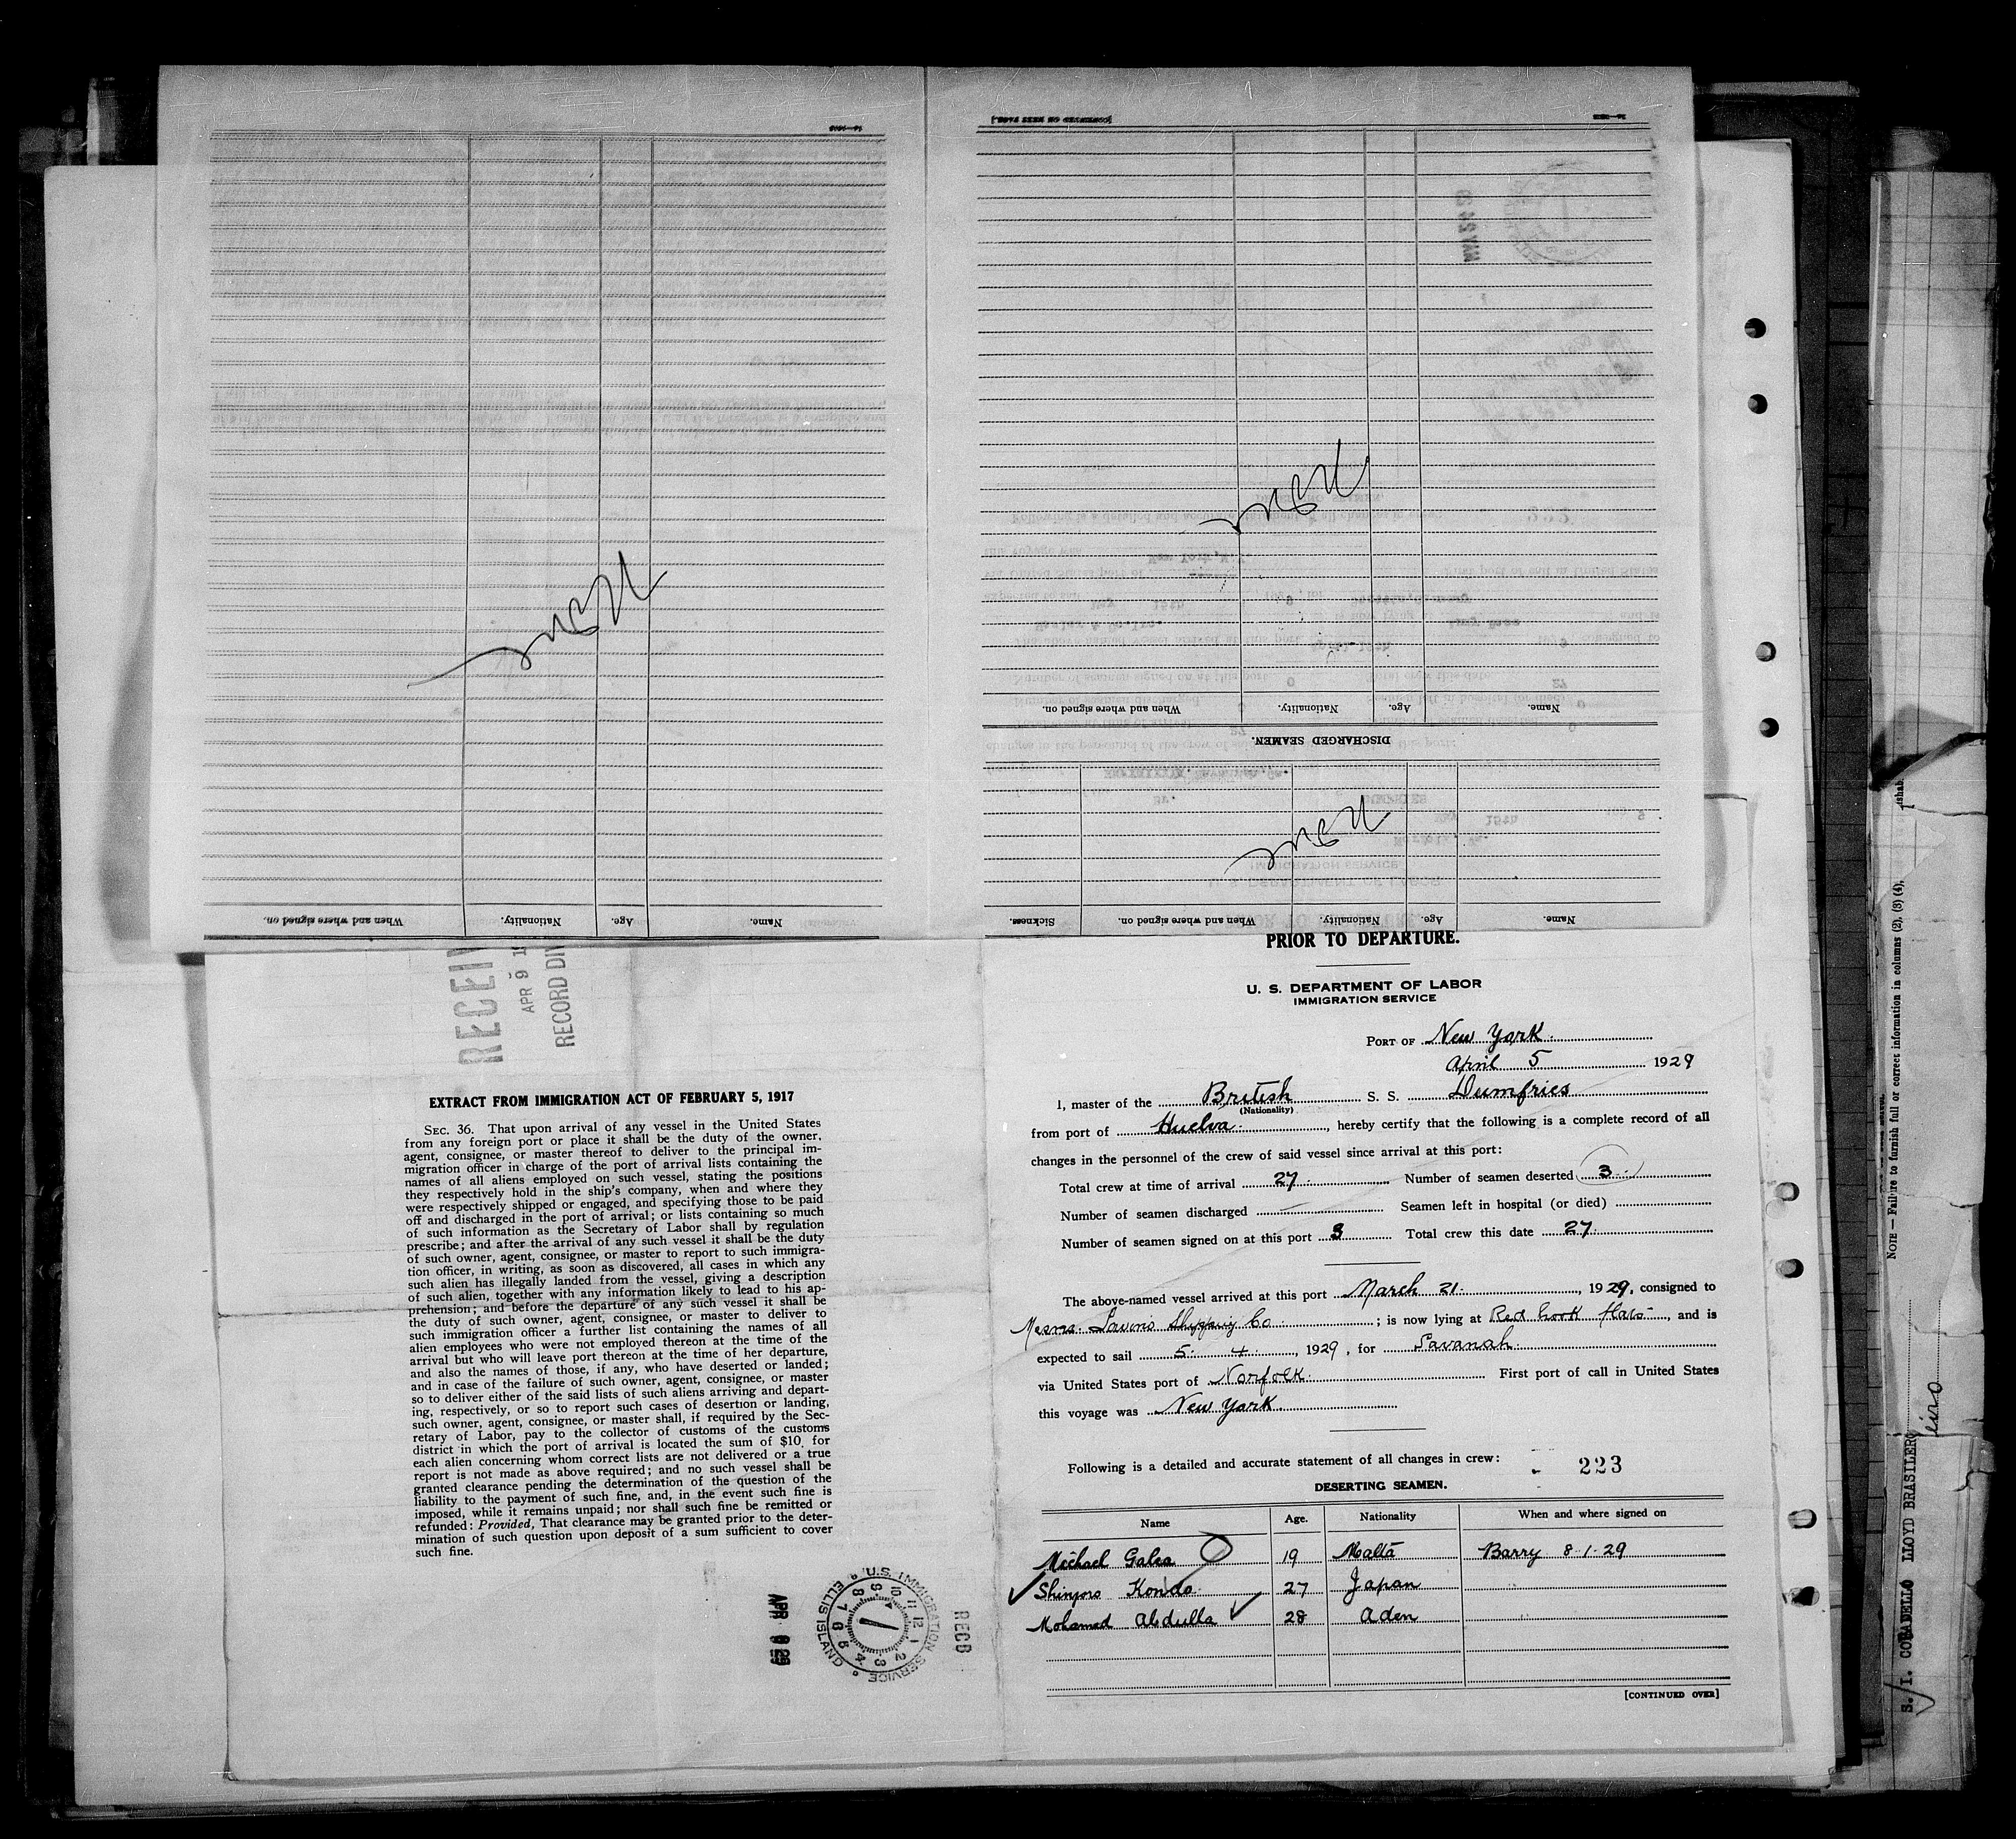 [CONTINUED ON NEXT PAGE.]
Name. Age. Nationality. When and where signed on.
DISCHARGED SEAMEN.
Name. Age. Nationality. When and where signed on. Sickness.
Name. Age. Nationality. When and where signed on.
APR 9
RECORD DIV
PRIOR TO DEPARTURE.
U. S. DEPARTMENT OF LABOR
IMMIGRATION SERVICE
PORT OF New York.
April 5 1929
I, master of the British S. S. Dumfries
(Nationality)
from port of Huelva, hereby certify that the following is a complete record of all
changes in the personnel of the crew of said vessel since arrival at this port:
Total crew at time of arrival 27. Number of seamen deserted 3.
Number of seamen discharged Seamen left in hospital (or died)
Number of seamen signed on at this port 3 Total crew this date 27.
The above-named vessel arrived at this port March 21., 1929, consigned to
Messrs. Shipping Co.; is now lying at Red hook flats, and is
expected to sail 5. 4., 1929, for Savanah.
via United States port of Norfolk. First port of call in United States
this voyage was New York.
Following is a detailed and accurate statement of all changes in crew: - 223
DESERTING SEAMEN.
Name Age. Nationality When and where signed on
Michael Galea 19 Malta Barry 8-1-29
Shinjoro Kondo. 27 Japan
Mohamed Abdulla 28 Aden "
[CONTINUED OVER]
EXTRACT FROM IMMIGRATION ACT OF FEBRUARY 5, 1917
SEC. 36. That upon arrival of any vessel in the United States
from any foreign port or place it shall be the duty of the owner,
agent, consignee, or master thereof to deliver to the principal im-
migration officer in charge of the port of arrival lists containing the
names of all aliens employed on such vessel, stating the positions
they respectively hold in the ship's company, when and where they
were respectively shipped or engaged, and specifying those to be paid
off and discharged in the port of arrival; or lists containing so much
of such information as the Secretary of Labor shall by regulation
prescribe; and after the arrival of any such vessel it shall be the duty
of such owner, agent, consignee, or master to report to such immigra-
tion officer, in writing, as soon as discovered, all cases in which any
such alien has illegally landed from the vessel, giving a description
of such alien, together with any information likely to lead to his ap-
prehension; and before the departure of any such vessel it shall be
the duty of such owner, agent, consignee, or master to deliver to
such immigration officer a further list containing the names of all
alien employees who were not employed thereon at the time of the
arrival but who will leave port thereon at the time of her departure,
and also the names of those, if any, who have deserted or landed;
and in case of the failure of such owner, agent, consignee, or master
so to deliver either of the said lists of such aliens arriving and depart-
ing, respectively, or so to report such cases of desertion or landing,
such owner, agent, consignee, or master shall, if required by the Sec-
retary of Labor, pay to the collector of customs of the customs
district in which the port of arrival is located the sum of $10 for
each alien concerning whom correct lists are not delivered or a true
report is not made as above required; and no such vessel shall be
granted clearance pending the determination of the question of the
liability to the payment of such fine, and, in the event such fine is
imposed, while it remains unpaid; nor shall such fine be remitted or
refunded: Provided, That clearance may be granted prior to the deter-
mination of such question upon deposit of a sum sufficient to cover
such fine.
U.S. IMMIGRATION SERVICE
ELLIS ISLAND
REC'D
NOTE — Failure to furnish full or correct information in columns (2), (3) (4),
LLOYD BRASILEIRO